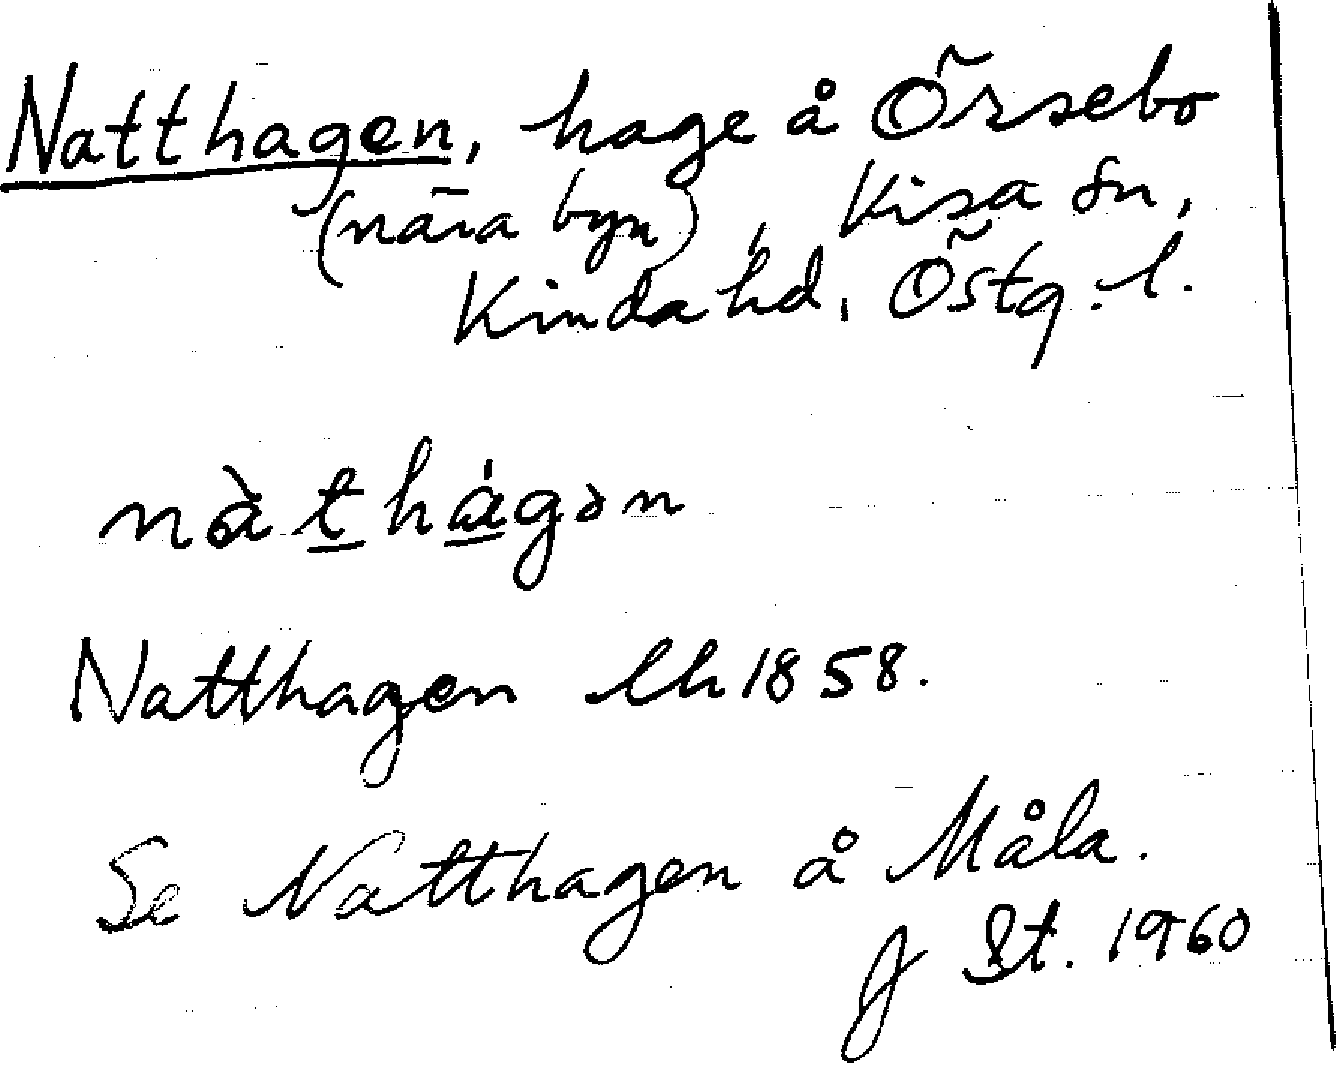 Natthagen, hage å Örsebo
(nära byn), Kisa sn,
Kinda hd, Östg. l.
nàthágən
Natthagen Lh 1858.
Se Natthagen å Måla.
St. 1960